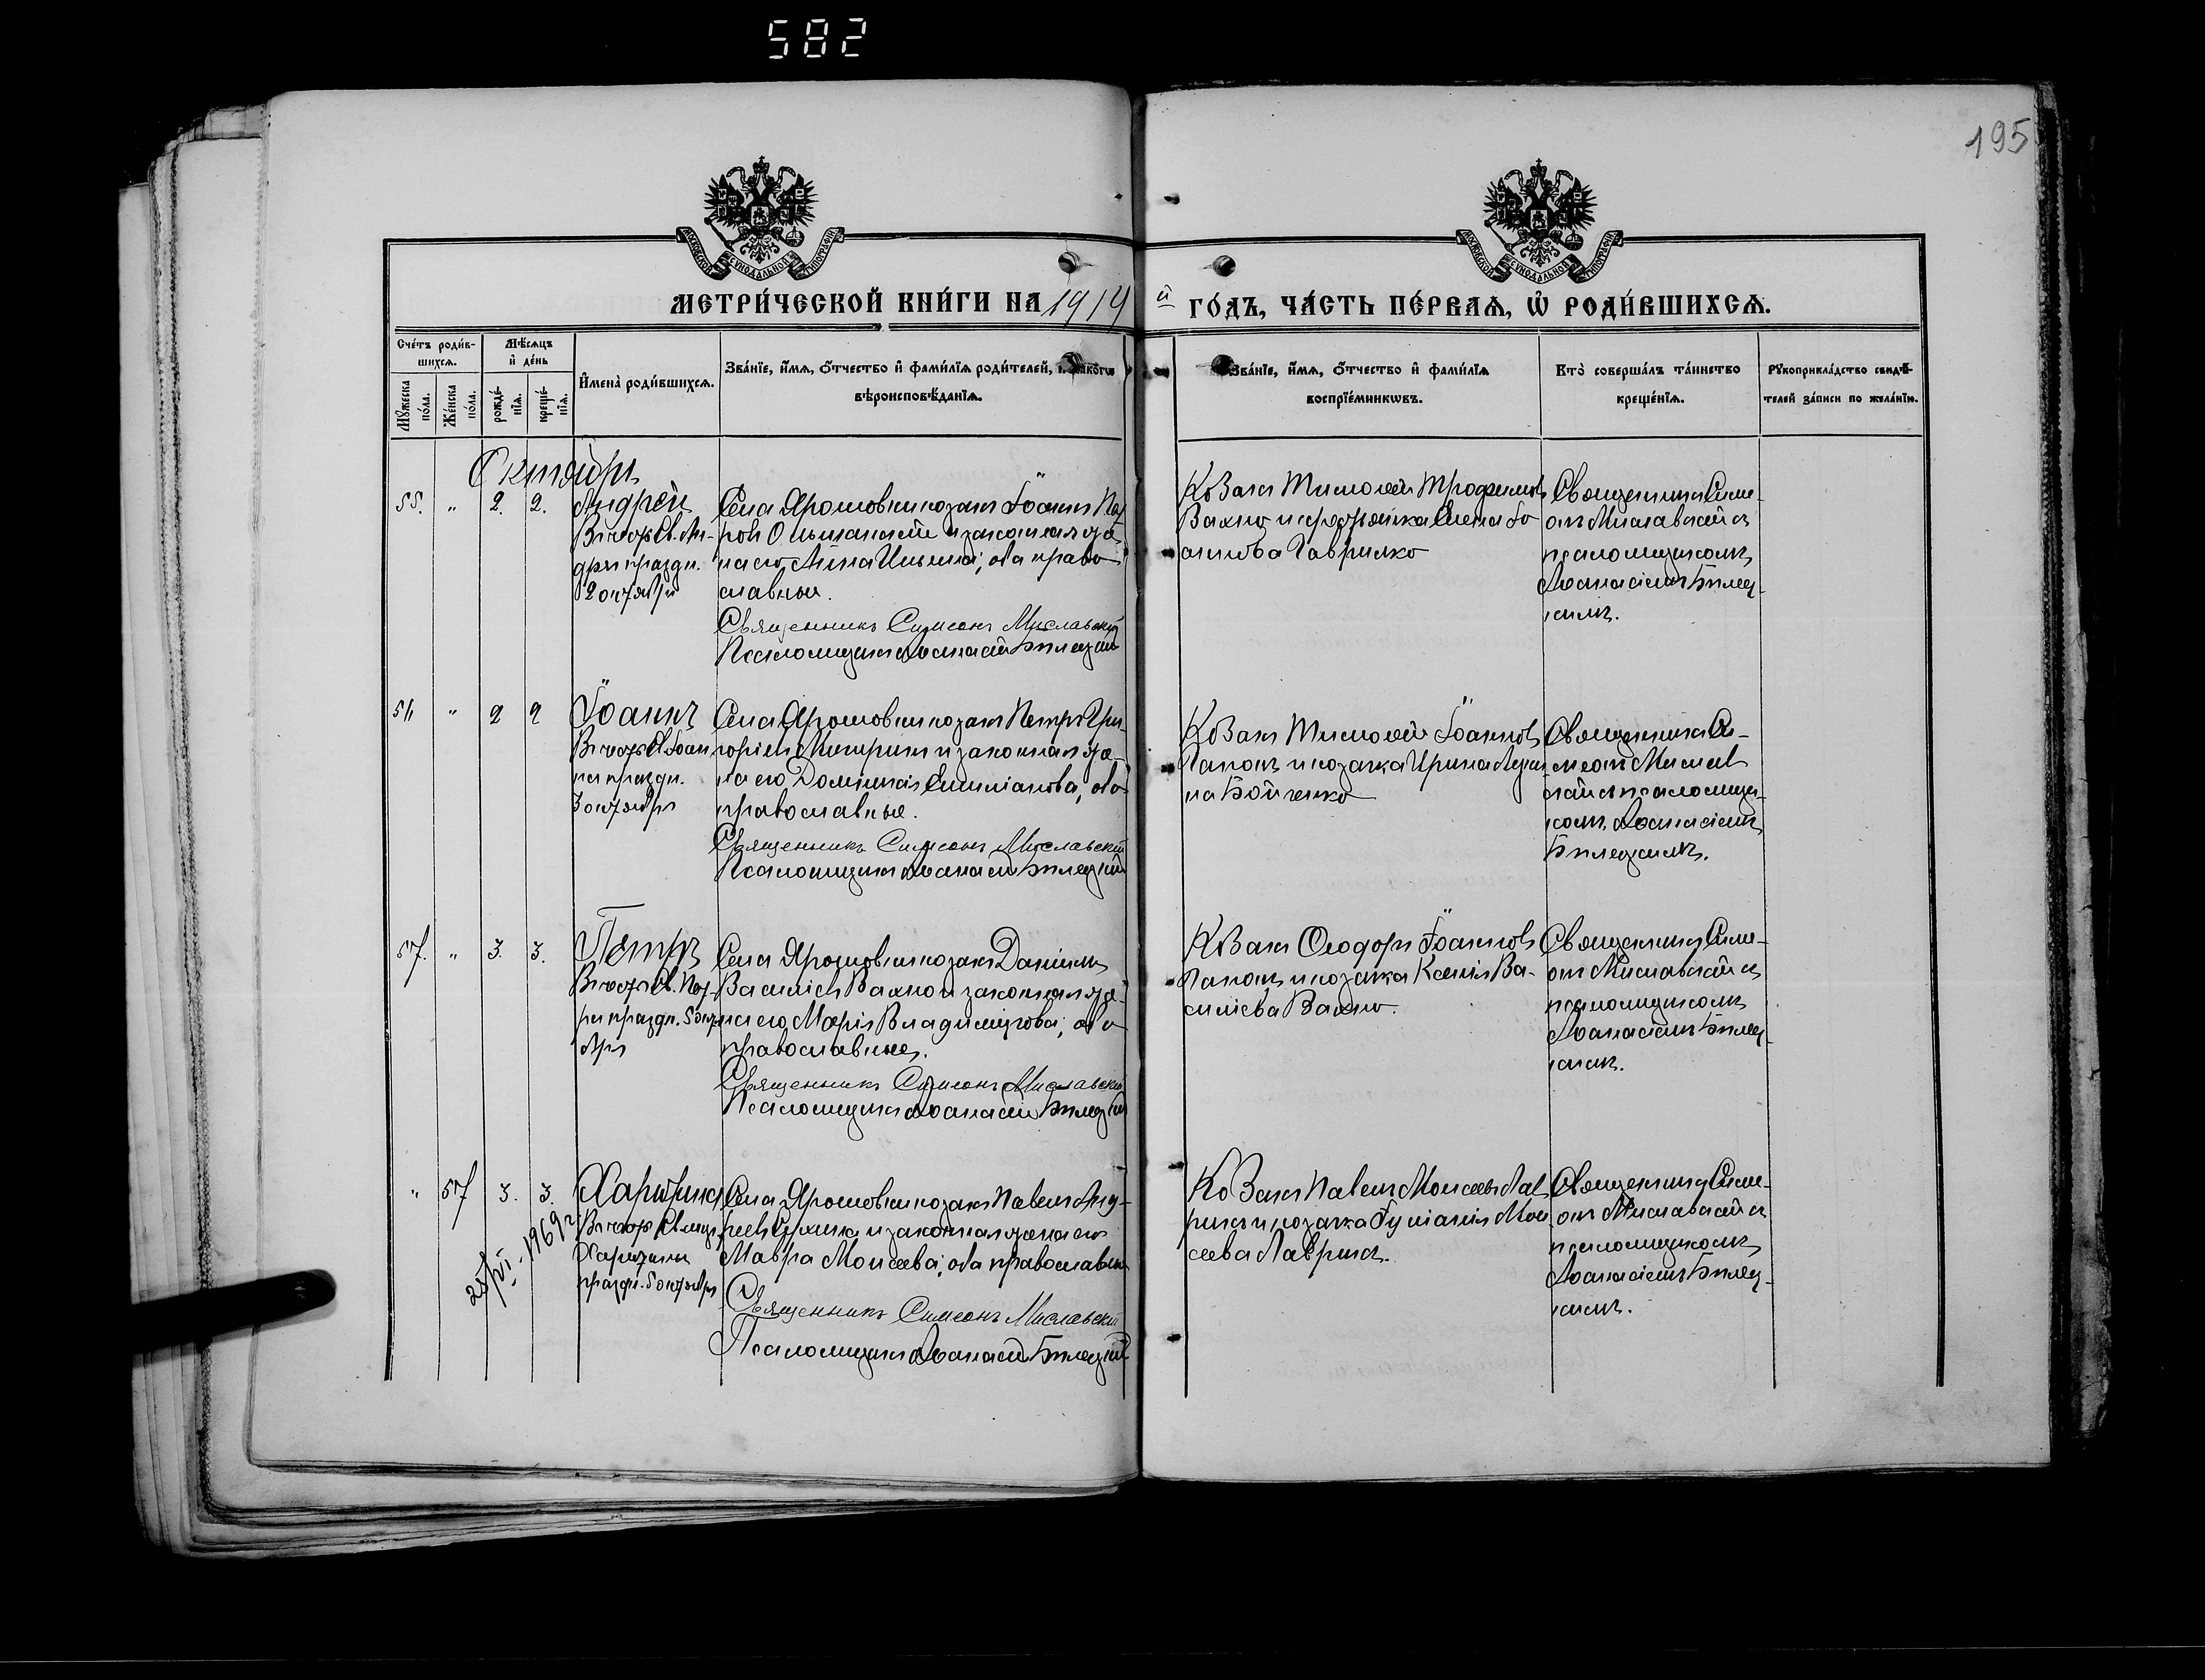 582
195
МОСКОВСКОЙ СѴНОДАЛЬНОЙ ТИПОГРАФІИ
МОСКОВСКОЙ СѴНОДАЛЬНОЙ ТИПОГРАФІИ
МЕТРИ́ЧЕСКОЙ КНИ́ГИ НА 1914
й ГО́ДЪ, ЧА́СТЬ ПЕ́РВАѦ, Ѿ РОДИ́ВШИХСѦ.
Сче́тъ роди́в-
шихсѧ.
Мꙋ́жеска
по́ла.
Же́нска
по́ла.
Мѣ́сѧцъ
и҆ де́нь
рожде́-
нїѧ.
креще́-
нїѧ.
И҆мена̀ роди́вшихсѧ.
Зва́нїе, и҆́мѧ, ѻ҆́тчество и҆ фами́лїѧ роди́телей, и҆ како́гѡ
вѣроисповѣ́данїѧ.
Зва́нїе, и҆́мѧ, ѻ҆́тчество и҆ фами́лїѧ
воспрїе́мникѡвъ.
Кто̀ соверша́лъ та́инство
креще́нїѧ.
Рꙋкоприкла́дство свидѣ́-
телей за́писи по жела́нїю.
Октябрь
55. " 2. 2.
Андрей
В честь Св. Ан-
дрея праздн.
2 октября
Села Ярошовки козакъ Іоаннъ Пет
ровъ и законная же-
на его Анна Ильина, оба право
славные.
Священникъ Симеонъ Миславскій
Псаломщикъ Аѳанасій Билецкій
Козакъ Тимоѳей Трофимовъ
Вахно и Елена Іо
аннова Гаврилко
Священникъ Симе-
онъ Миславскій съ
псаломщикомъ
Аѳанасіемъ Билец-
кимъ.
56 " 2 2
Іоаннъ
В честь Св. Іоан
на праздн.
3 октября
Села Ярошовки козакъ Петръ Гри-
горіевъ и законная же-
на его Домникія Емиліанова, оба
православные.
Священникъ Симеонъ Миславскій
Псаломщикъ Аѳанасій Билецкій
Козакъ Тимоѳей Іоанновъ
Лапокъ и козачка Ирина
на Бойченко
Священникъ Си-
меонъ Мислав
скій съ псаломщи-
комъ Аѳанасіемъ
Билецкимъ.
57. " 3. 3.
Петръ
В честь Св. Пет-
ра праздн. 5 октя
бря
Села Ярошовки козакъ Даніилъ
Василіевъ Вахно и законная же-
на его Марія Владимірова, оба
православные.
Священникъ Симеонъ Миславскій
Псаломщикъ Аѳанасій Билецкій
Козакъ Ѳеодоръ Іоанновъ
Лапокъ и козачка Ксенія Ва-
силіева Вахно.
Священникъ Симе-
онъ Миславскій съ
псаломщикомъ
Аѳанасіемъ Билец-
кимъ.
" 57 3. 3.
25/VI-1969 г
Харитина
В честь Св. муч.
Харитины
праздн. 5 октября
Села Ярошовки козакъ Павелъ Анд-
реевъ и законная жена его
Мавра Моисеева, оба православные
Священникъ Симеонъ Миславскій
Псаломщикъ Аѳанасій Билецкій
Козакъ Павелъ Моисеевъ Лав
ринъ и козачка Іуліанія Мои
сеева Лаврина.
Священникъ Симе-
онъ Миславскій съ
псаломщикомъ
Аѳанасіемъ Билец-
кимъ.